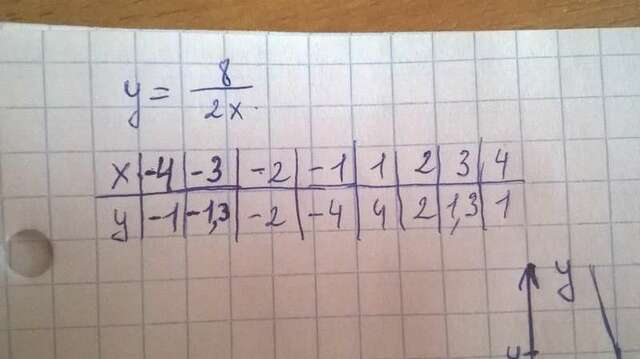 y = 8 / 2x.
x | -4 | -3 | -2 | -1 | 1 | 2 | 3 | 4
y | -1 | -1,3 | -2 | -4 | 4 | 2 | 1,3 | 1
y